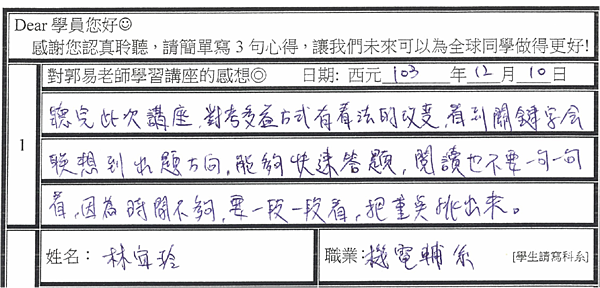 Dear 學員您好☺
感謝您認真聆聽，請簡單寫 3 句心得，讓我們未來可以為全球同學做得更好!
對郭易老師學習講座的感想◎ 日期: 西元 103 年 12 月 10 日
1
聽完此次講座，對考多益方式有看法的改變，看到關鍵字會
聯想到出題方向，能夠快速答題，閱讀也不要一句一句
看，因為時間不夠，要一段一段看，把重點挑出來。
姓名： 林宜玲 職業: 機電輔系 [學生請寫科系]